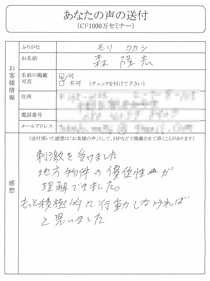 あなたの声の送付
(CF1000万セミナー)
お客様情報
ふりがな モリ タカシ
お名前 森 隆志
名前の掲載 可否 可 不可 (チェックを付けて下さい)
住所
電話番号
メールアドレス
感想
刺激を受けました
地方物件の優位性が
理解できました。
もっと積極的に行動しなければ
と思いました